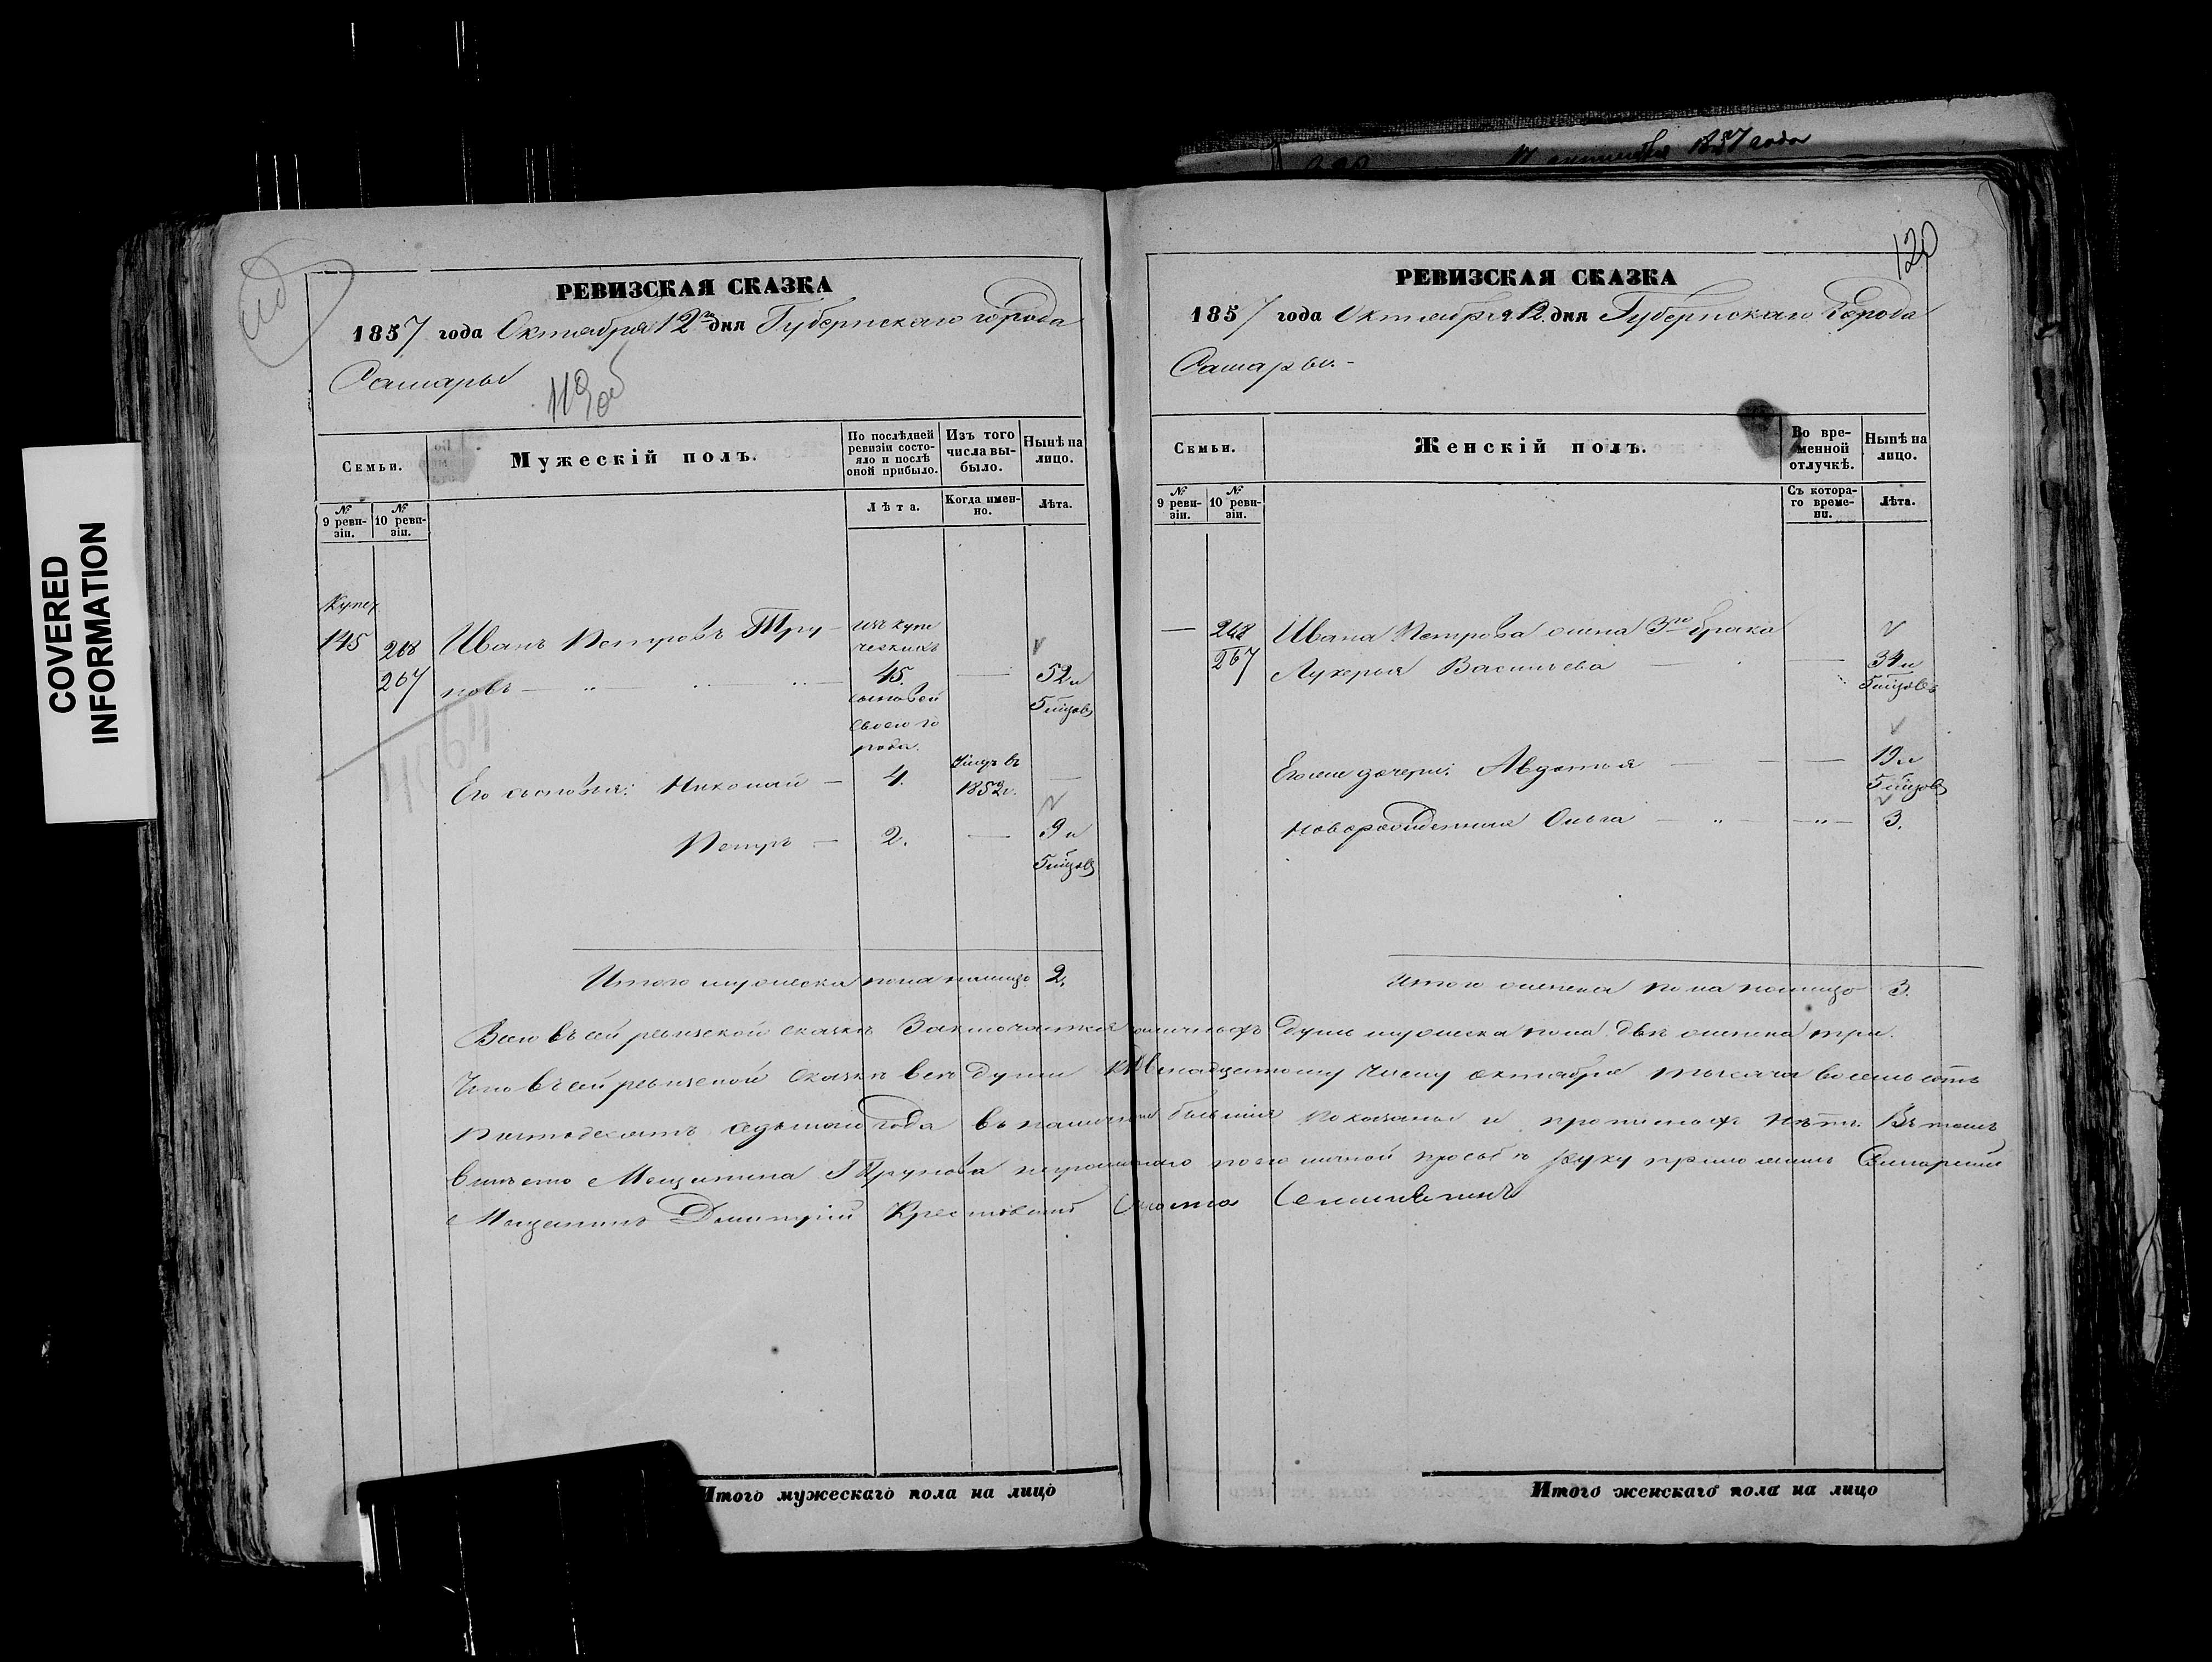 17 октября 1857 года
COVERED
INFORMATION
РЕВИЗСКАЯ СКАЗКА
1857 года Октября 12го дня Губернскаго города
Самары
119об
Семьи.
Мужескій полъ.
По послѣдней ревизіи состояло и послѣ оной прибыло.
Изъ того числа выбыло.
Нынѣ на лицо.
№ 9 ревизіи.
№ 10 ревизіи.
Лѣта.
Когда именно.
Лѣта.
Купеч
145 268 Иванъ Петровъ Тру- изъ купе
ческихъ
267 новъ — " — 45. — 52 и
сыновей 5 мѣсяцовъ
своего
рода.
Его сыновья: Николай — 4. Умеръ въ 1852 г. —
Петръ — 2. — 9 и
5 мѣсяцовъ
Итого мужеска пола налицо 2.
Итого мужескаго пола на лицо
120
РЕВИЗСКАЯ СКАЗКА
1857 года Октября 12 дня Губернскаго Города
Самары.-
Семьи.
Женскій полъ.
Во временной отлучкѣ.
Нынѣ на лицо.
№ 9 ревизіи.
№ 10 ревизіи.
Съ котораго времени.
Лѣта.
— 268 Ивана Петрова жена 3го брака
267 Лукерья Васильева — — 34 и
5 мѣсяцовъ
Его же дочери: Авдотья — — 19 и
5 мѣсяцовъ
Новорожденная Ольга — " — " — 3.
Итого женска пола налицо 3.
Всего въ сей ревизской сказкѣ Заключается наличныхъ душъ мужеска пола двѣ женска три.
Что въ сей ревизской сказкѣ всѣ души къ Двенадцатому числу октября тысяча восемь сотъ
пятьдесятъ седьмаго года въ наличности бывшія показаны и прописныхъ нѣтъ. Въ томъ
вмѣсто Мещанина Трунова неграмотнаго по его личной просьбѣ руку приложилъ Самарский
Мещанинъ Дмитрій
Итого женскаго пола на лицо